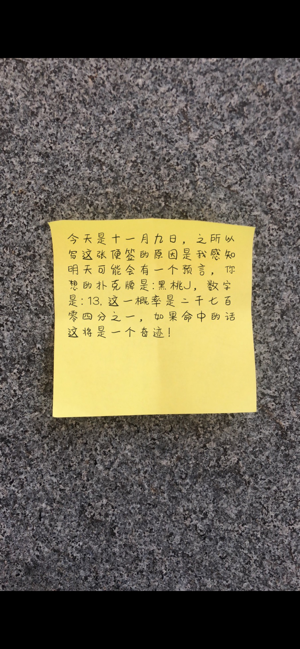 今天是十一月九日，之所以
写这张便签的原因是我感知
明天可能会有一个预言，你
想的扑克牌是:黑桃J，数字
是:13.这一概率是二千七百
零四分之一，如果命中的话
这将是一个奇迹!